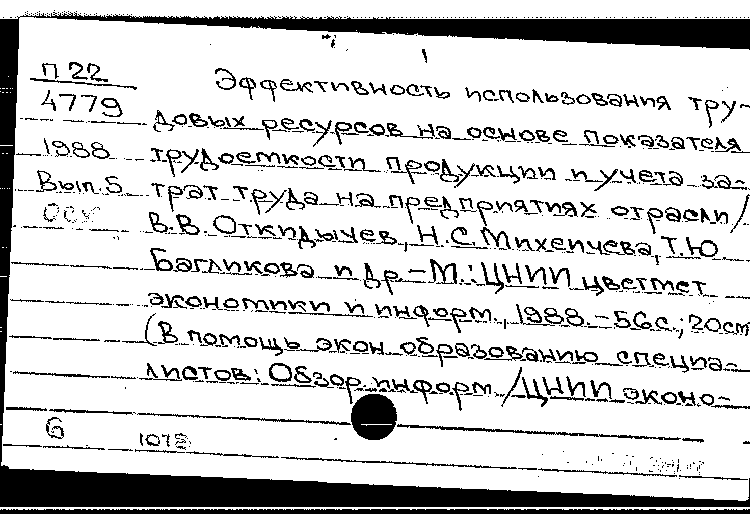 П 22
4779
1988
Вып. 5
Эффективность использования тру-
довых ресурсов на основе показателя
трудоемкости продукции и учета за-
трат труда на предприятиях отрасли/
В.В. Откидычев, Н.С. Михеичева, Т.Ю
Багликова и др.-М.: ЦНИИ цветмет
экономики и информ., 1988.-56с.; 20см
(В помощь экон. образованию специа-
листов: Обзор. информ./ЦНИИ эконо-
6
1078